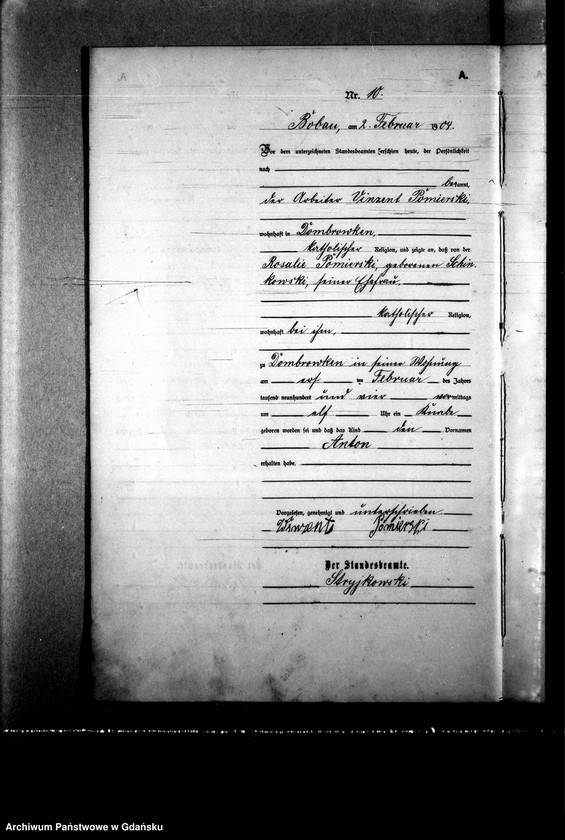 A.
Nr. 10.
Bobau, am 2. Februar 1904.
Vor dem unterzeichneten Standesbeamten erschien heute, der Persönlichkeit
nach
bekannt,
der Arbeiter Vinzent Pomierski,
wohnhaft in Dombrowken,
katholischer Religion, und zeigte an, daß von der
Rosalie Pomierski, geborenen Schin-
kowski, seiner Ehefrau,
katholischer Religion,
wohnhaft bei ihm,
zu Dombrowken in seiner Wohnung
am ersten Februar des Jahres
tausend neunhundert und vier vormittags
um elf Uhr ein Knabe
geboren worden sei und daß das Kind den Vornamen
Anton
erhalten habe.
Vorgelesen, genehmigt und unterschrieben
Vinzent Pomierski
Der Standesbeamte.
Stryjkowski
Archiwum Państwowe w Gdańsku